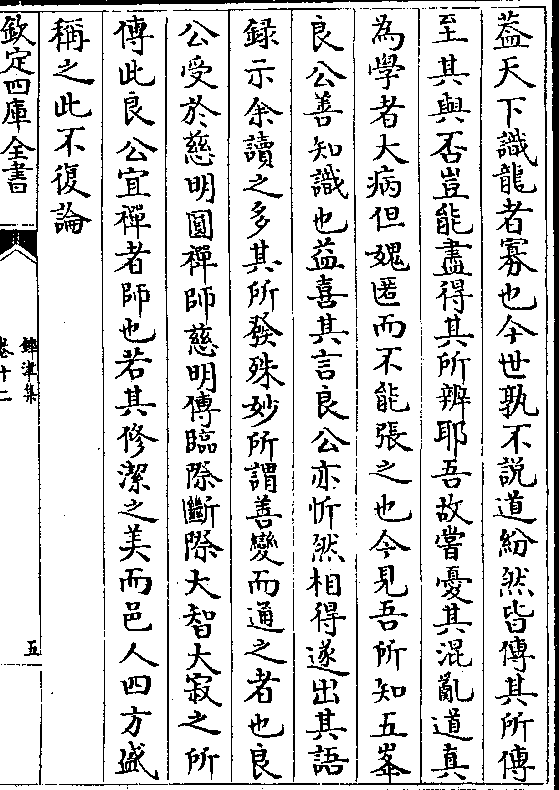 葢天下識龍者寡也今世孰不說道紛然皆傳其所傳
至其與否豈能盡得其所辨耶吾故嘗憂其混亂道真
為學者大病但媿匿而不能張之也今見吾所知五峯
良公善知識也益喜其言良公亦忻然相得遂出其語
録示余讀之多其所發殊妙所謂善變而通之者也良
公受於慈明圓禪師慈明傳臨際斷際大智大寂之所
傳此良公宜禪者師也若其修潔之美而邑人四方盛
稱之此不復論
欽定四庫全書
鐔津集
卷十二
五